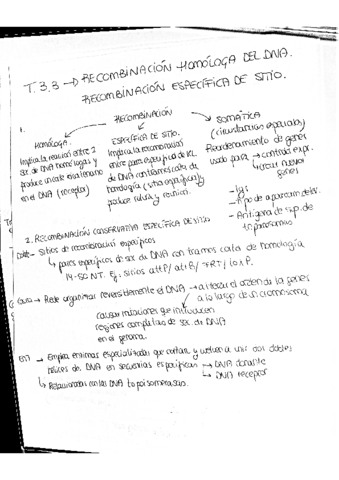 T.3.3 → RECOMBINACIÓN HOMÓLOGA DEL DNA.
RECOMBINACIÓN ESPECÍFICA DE SITIO.
1.
RECOMBINACIÓN
HOMÓLOGA
Implica la reacción entre 2
sec. de DNA homólogas y
produce un
en el DNA (receptor)
ESPECÍFICA DE SITIO.
Implica la recombinación
entre pares específicos de
de DNA con tramos cortos de
homología (sitios específicos) y
produce rotura y reunión.
SOMÁTICA
(circunstancias especiales)
Reordenamiento de genes
usado para → controlar expr.
crear nuevos
genes
- Igs
- Antígeno de sup. de
2. RECOMBINACIÓN CONSERVATIVA ESPECÍFICA DE SITIO
- Sitios de recombinación específicos
↳ pares específicos de sec. de DNA con tramos cortos de homología
14-50 NT. Ej. sitios attP/attB/FRT/loxP.
- Puede organizar reversiblemente el DNA → alterar el orden de los genes
a lo largo de un cromosoma
causa mutaciones que introducen
regiones completas de sec. de DNA
en el genoma.
→ Emplea enzimas especializadas que cortan y vuelven a unir dos dobles
hélices de DNA en secuencias específicas → DNA donante
↳ DNA receptor
↳ Relacionadas con las DNA topoisomerasas.